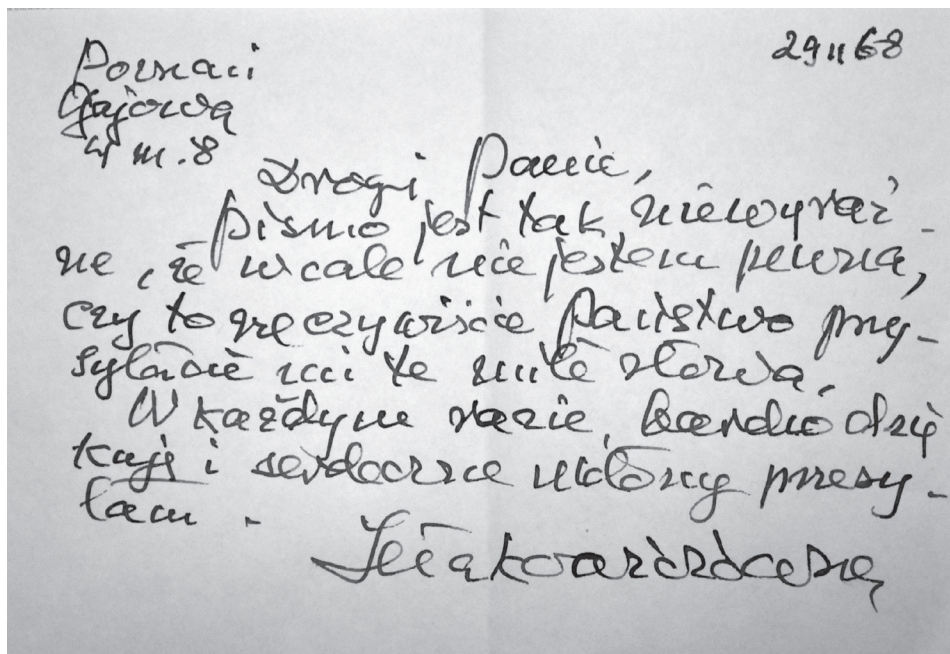 29 11 68
Poznań
Gajowa
4 m. 8
Drogi Panie,
pismo jest tak niewyraź-
ne, że wcale nie jestem pewna,
czy to rzeczywiście Państwo przy-
syłacie mi te miłe słowa.
W każdym razie, bardzo dzię
kuję i serdeczne ukłony przesy-
łam.